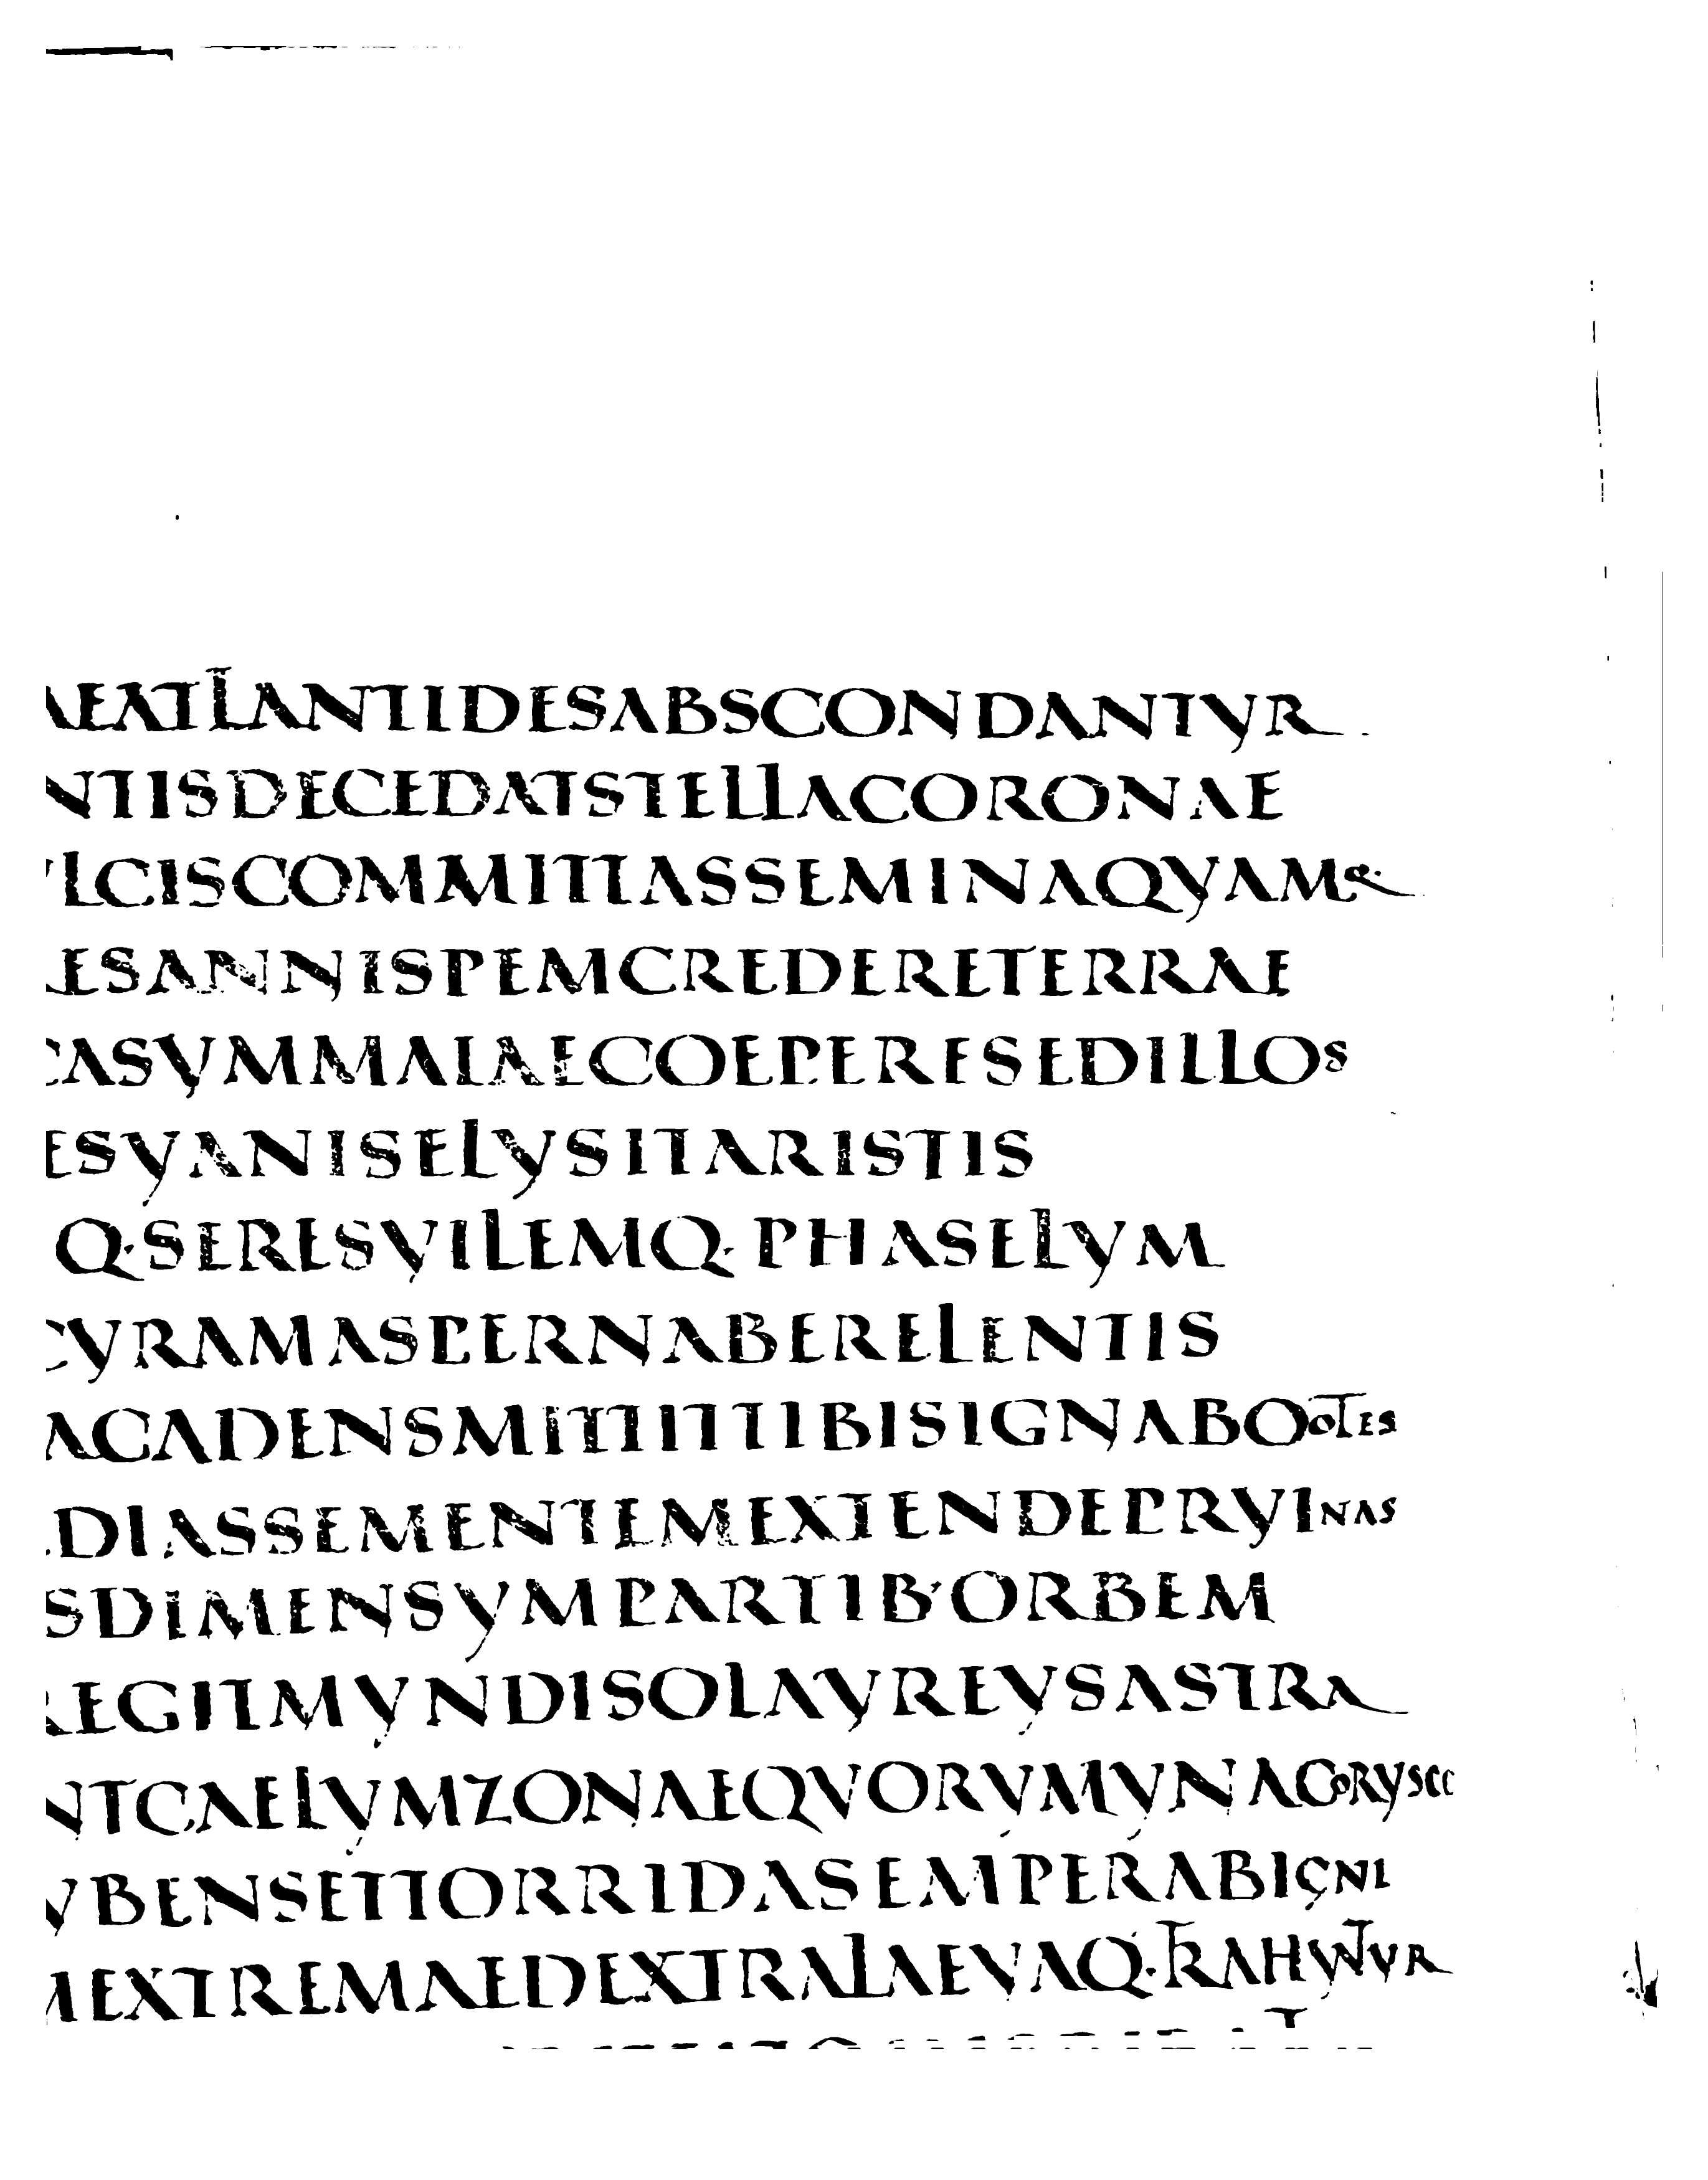 AEATLANTIDESABSCONDANTVR
NTISDECEDATSTELLACORONAE
LCISCOMMITTASSEMINAQVAMQ·
ESANNISPEMCREDERETERRAE
CASVMMAIAECOEPERESEDILLOS
ESVANISELVSITARISTIS
Q·SERESVILEMQ·PHASELVM
CVRAMASPERNABERELENTIS
ACADENSMITTITTIBISIGNABOOTES
DIASSEMENTEMEXTENDEPRVINAS
SDIMENSVMPARTIB·ORBEM
REGITMVNDISOLAVREVSASTRA
NTCAELVMZONAEQVORVMVNACORVSCC
VBENSETTORRIDASEMPERABIGNI
MEXTREMAEDEXTRALAEVAQ·TRAHVNTVR